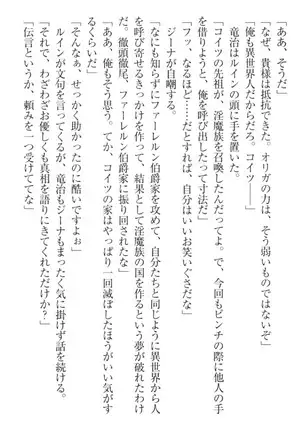 「ああ、そうだ」
「なぜ、貴様は抵抗できた。オリガの力は、そう弱いものではないぞ」
「俺も異世界人だからだろ。コイツ――」
竜治はルインの頭に手を置いた。
「コイツの先祖が、淫魔族を召喚したんだってよ。で、今回もピンチの際に他人の手
を借りようと、俺を呼び出したって寸法だ」
「フッ、なるほど……だとすれば、自分はいいお笑いぐさだな」
ジーナが自嘲する。
「なにも知らずにファーレルン伯爵家を攻めて、自分たちと同じように異世界から人
を呼び寄せるきっかけを作って、結果として淫魔族の国を作るという夢が破れたわけ
だ。徹頭徹尾、ファーレルン伯爵家に振り回されたな」
「ああ、俺もそう思う。てか、コイツの家はやっぱり一回滅ぼしたほうがいい気がす
るくらいだ」
「そんなぁ、せっかく助かったのに酷いですよぉ」
ルインが文句を言ってくるが、竜治もジーナもまったく気に掛けず話を続ける。
「それで、わざわざお優しくも真相を語りにきてくれただけか？」
「伝言というか、頼みを一つ受けててな」